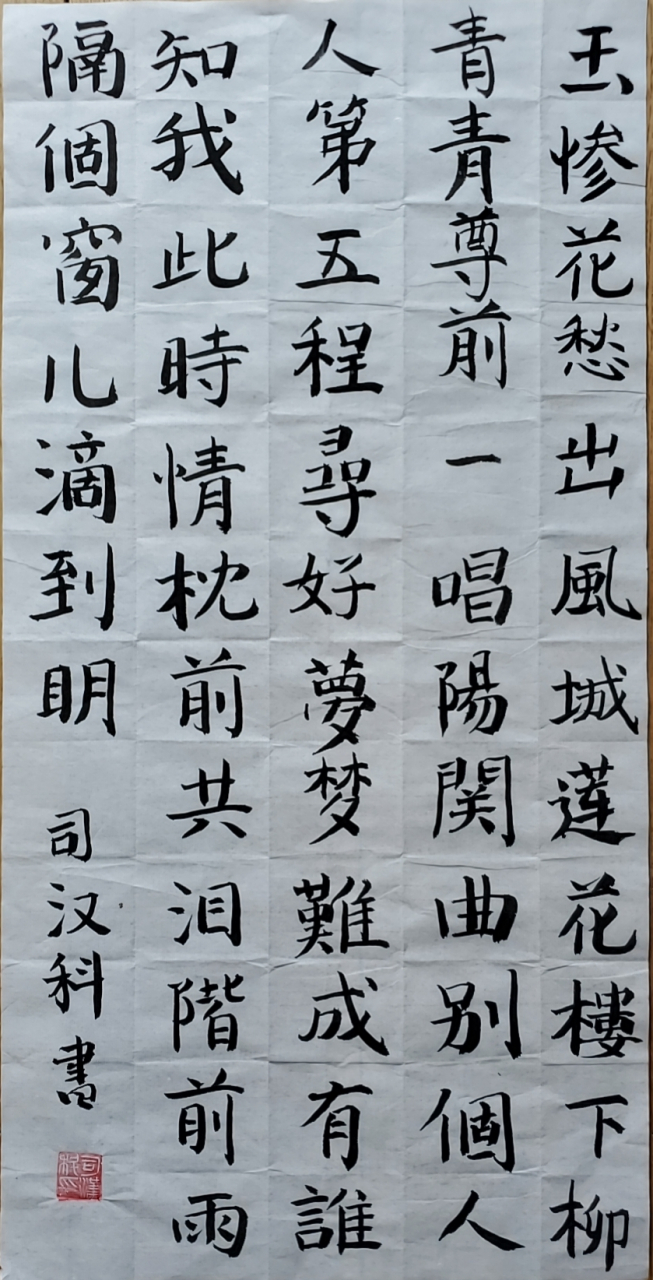 玉惨花愁出風城莲花樓下柳
青青尊前一唱陽関曲别個人
人第五程尋好夢梦難成有誰
知我此時情枕前共泪階前雨
隔個窗儿滴到明
司汉科書
司漢科印